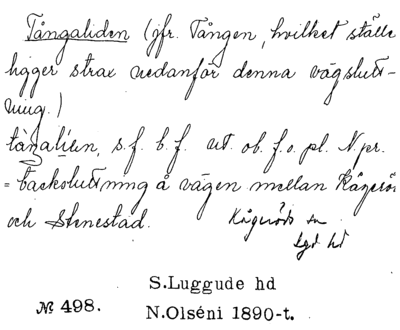 Tångaliden (jfr. Tången, hvilket ställe
ligger strax nedanför denna vägslutt-
ning.)
tångalíen, s.f. b.f. ut. ob. f. o. pl. N.pr.
= backsluttning å vägen mellan Kågeröd
och Stenestad. Kågeröds sn
Lgd hd
S.Luggude hd
№ 498. N.Olséni 1890-t.